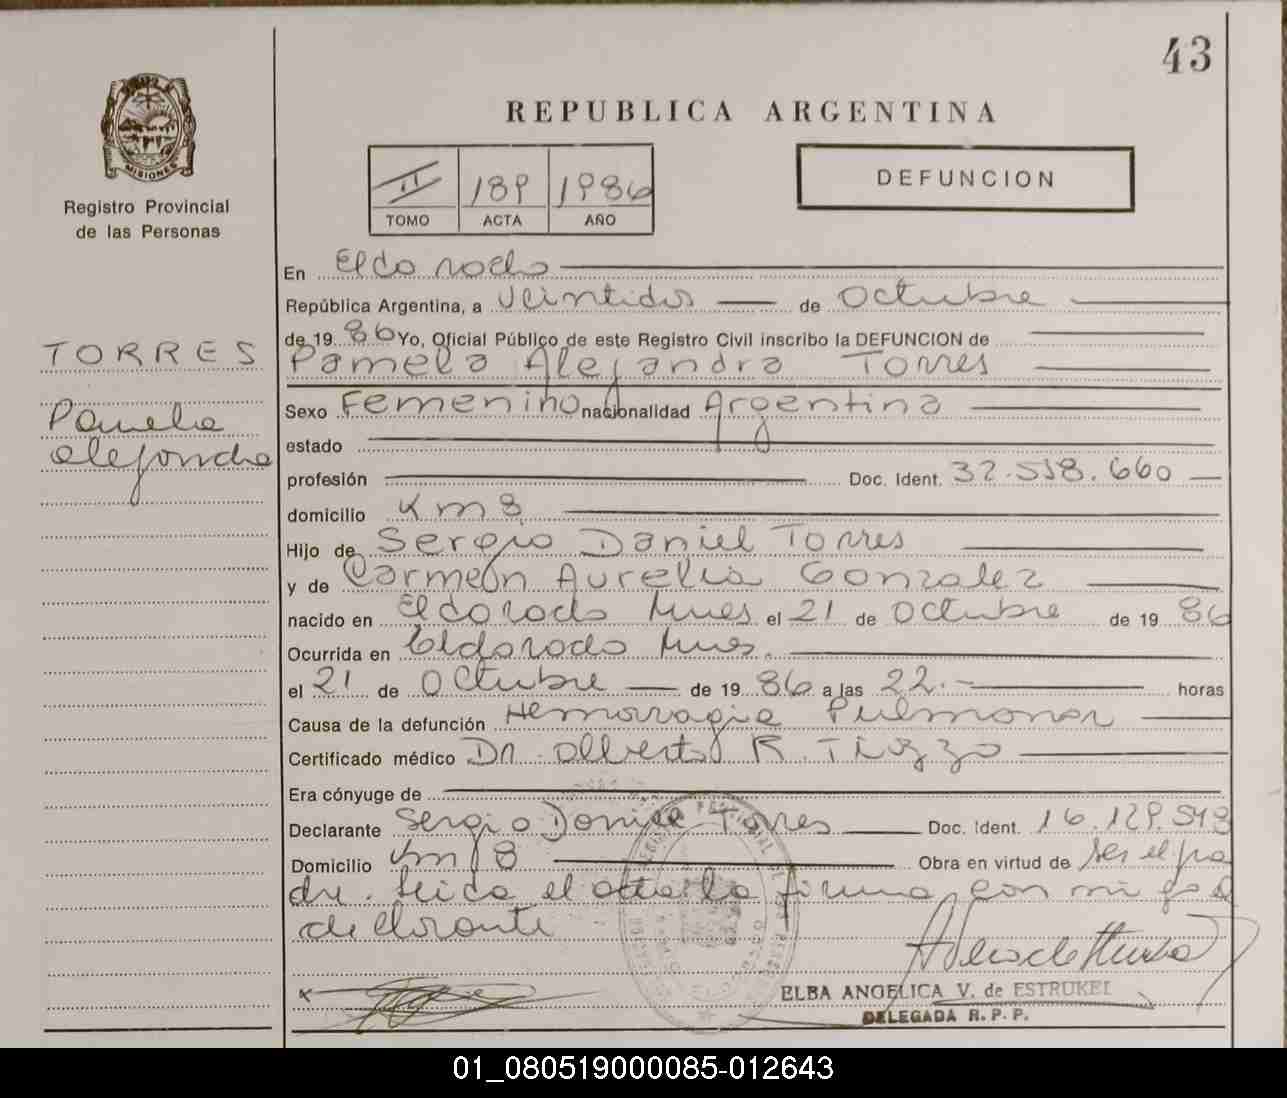 43
REPUBLICA ARGENTINA
MISIONES
Registro Provincial
de las Personas
II 189 1986
TOMO ACTA AÑO
DEFUNCION
En Eldorado
República Argentina, a veintidos de Octubre
de 19 86 Yo, Oficial Público de este Registro Civil inscribo la DEFUNCION de
TORRES
Pamela Alejandra Torres
Pamela
Sexo Femenino nacionalidad Argentina
alejandra
estado
profesión Doc. Ident. 32.518.660
domicilio Km 8
Hijo de Sergio Daniel Torres
y de Carmen Aurelia Gonzalez
nacido en Eldorado Mnes el 21 de Octubre de 19 86
Ocurrida en Eldorado Mnes.
el 21 de Octubre de 19 86 a las 22.- horas
Causa de la defunción Hemorragia Pulmonar
Certificado médico Dr. Alberto R. Tiozzo
Era cónyuge de
Declarante Sergio Daniel Torres Doc. Ident. 16.129.543
Domicilio Km 8 Obra en virtud de ser el pa
dre. Leida el acta la firma con migo el
declarante
x
ELBA ANGELICA V. de ESTRUKEL
DELEGADA R. P. P.
01_080519000085-012643